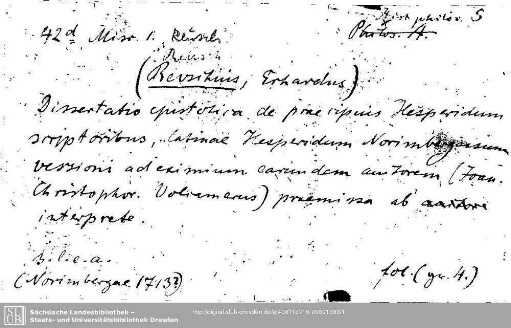 Hist. philol. S
42d Misc. 1. Reusch Philos. A.
Reusch
(Reusihius, Erhardus)
Dissertatio epistolica de praecipuis Hesperidum
scriptoribus, latinae Hesperidum Norimbergensium
versioni ad eximium earundem autorem (Joan.
Christophor. Volcamerus) praemissa ab autore
interprete.
s. l. e. a.
(Norimbergae 1713?) fol. (gr. 4.)
SLUB
Sächsische Landesbibliothek –
Staats- und Universitätsbibliothek Dresden